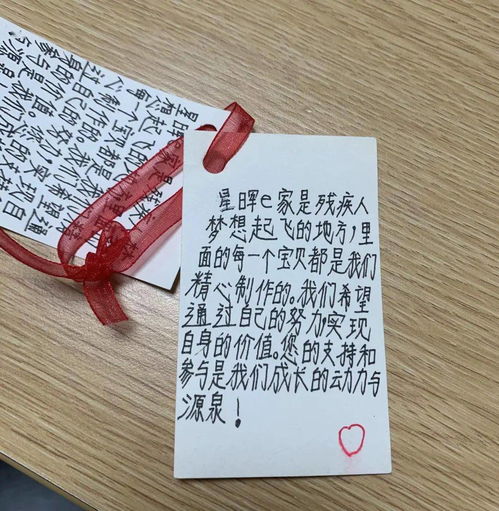 星晖e家是残疾人
梦想起飞的地方,里
面的每一个宝贝都是我们
精心制作的。我们希望
通过自己的努力,实现
自身的价值。您的支持和
参与是我们成长的动力与
源泉!